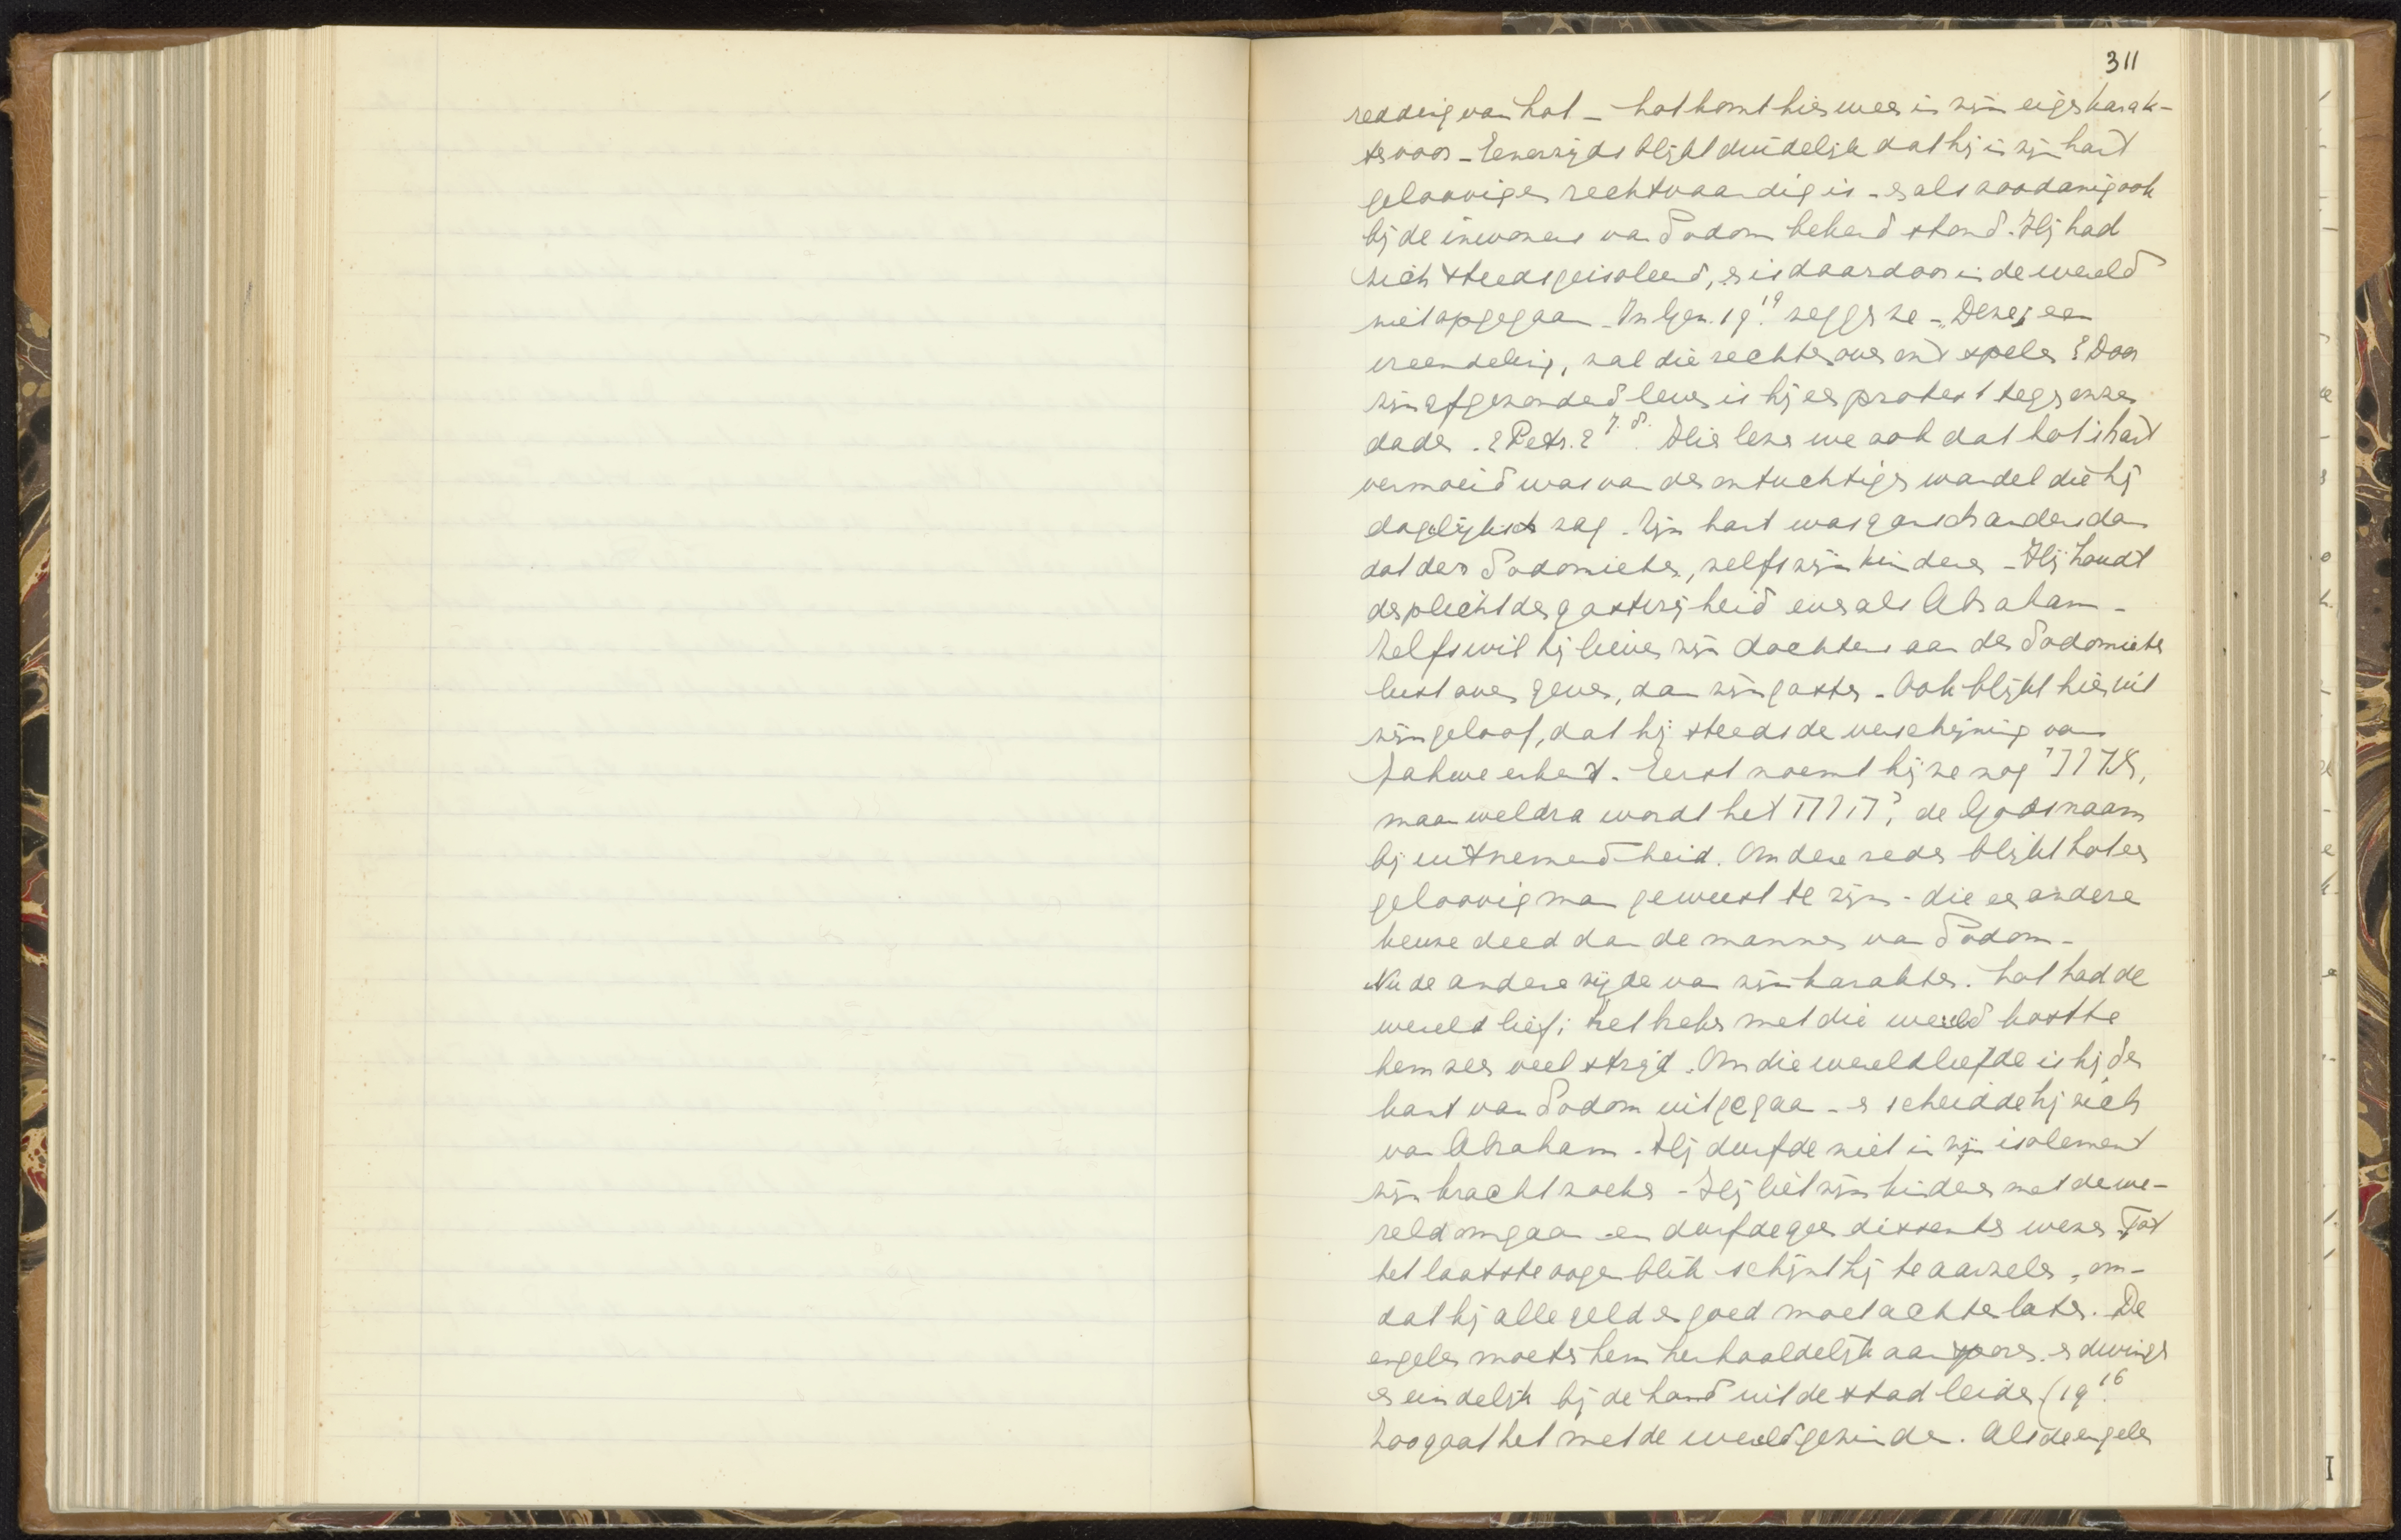 311
redding van Lot – Lot komt hier weer in zijn eigen karak-
ter voor – Eenerzijds blijkt duidelijk dat hij in zijn hart
geloovig en rechtvaardig is – en als zoodanig ook
bij de inwoners van Sodom bekend stond. Hij had
zich steeds geisoleerd, en is daardoor in de wereld
niet opgegaan – In Gen. 19.19 zeggen ze – „Deze is een
vreemdeling, zal die rechter over ons spelen? Door
zijn afgezonderd leven is hij een protest tegen onze
daden. 2 Petr. 2 7.8. Hier lezen we ook dat Lots hart
vermoeid was van den ontuchtigen wandel die hij
dagelijksch zag. Zijn hart was gansch anders dan
dat der Sodomieten, zelfs zijn kinderen – Hij houdt
de plicht der gastvrijheid evenals Abraham –
Zelfs wil hij liever zijn dochters aan der Sodomieten
lust over geven, dan zijn gasten. Ook blijkt hieruit
zijn geloof, dat hij steeds de verschijning van
Jahwe erkent. Eerst noemt hij ze nog אדני,
maar weldra wordt het יהוה, de Godsnaam
bij uitnemendheid. Om deze reden blijkt Lot een
geloovig man geweest te zijn – die een andere
keuze deed dan de mannen van Sodom –
Nu de andere zijde van zijn karakter. Lot had de
wereld lief; het breken met die wereld kostte
hem zeer veel strijd. Om die wereldliefde is hij de
kant van Sodom uitgegaan – en scheidde hij zich
van Abraham. Hij durfde niet in zijn isolement
zijn kracht zoeken – Hij liet zijn kinderen met de we-
reld omgaan en durfde geen dissenter wezen. Tot
het laatste oogenblik schijnt hij te aarzelen, om-
dat hij alle geld en goed moet achterlaten. De
engelen moeten hem herhaaldelijk aansporen en dwingen
en eindelijk bij de hand uit de stad leiden (19.16
Zoo gaat het met de wereldgezinden. Als de engelen